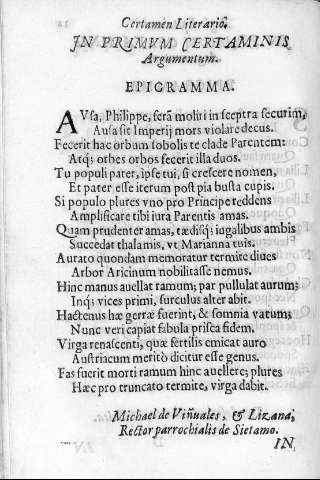 Certamen Literario.
IN PRIMVM CERTAMINIS
Argumentum.
EPIGRAMMA.
AVsa, Philippe, ferâ moliri in sceptra securim,
Ausa sit Imperij mors violare decus.
Fecerit hac orbum sobolis te clade Parentem:
Atq; orbes orbos fecerit illa duos.
Tu populi pater, ipse tui, si crescere nomen,
Et pater esse iterum post pia busta cupis.
Si populo plures vno pro Principe reddens
Amplificare tibi iura Parentis amas.
Quam prudenter amas, tædisq; iugalibus ambis
Succedat thalamis, vt Marianna tuis.
Aurato quondam memoratur termite diues
Arbor Aricinum nobilitasse nemus.
Hinc manus auellat ramum; par pullulat aurum;
Inq; vices primi, surculus alter abit.
Hactenus hæ gerræ fuerint, & somnia vatum;
Nunc veri capiat fabula prisca fidem.
Virga renascenti, quæ fertilis emicat auro
Austriacum meritò dicitur esse genus.
Fas fuerit morti ramum hinc auellere; plures
Hæc pro truncato termite, virga dabit.
Michael de Viñuales, & Lizana,
Rector parrochialis de Sietamo.
IN